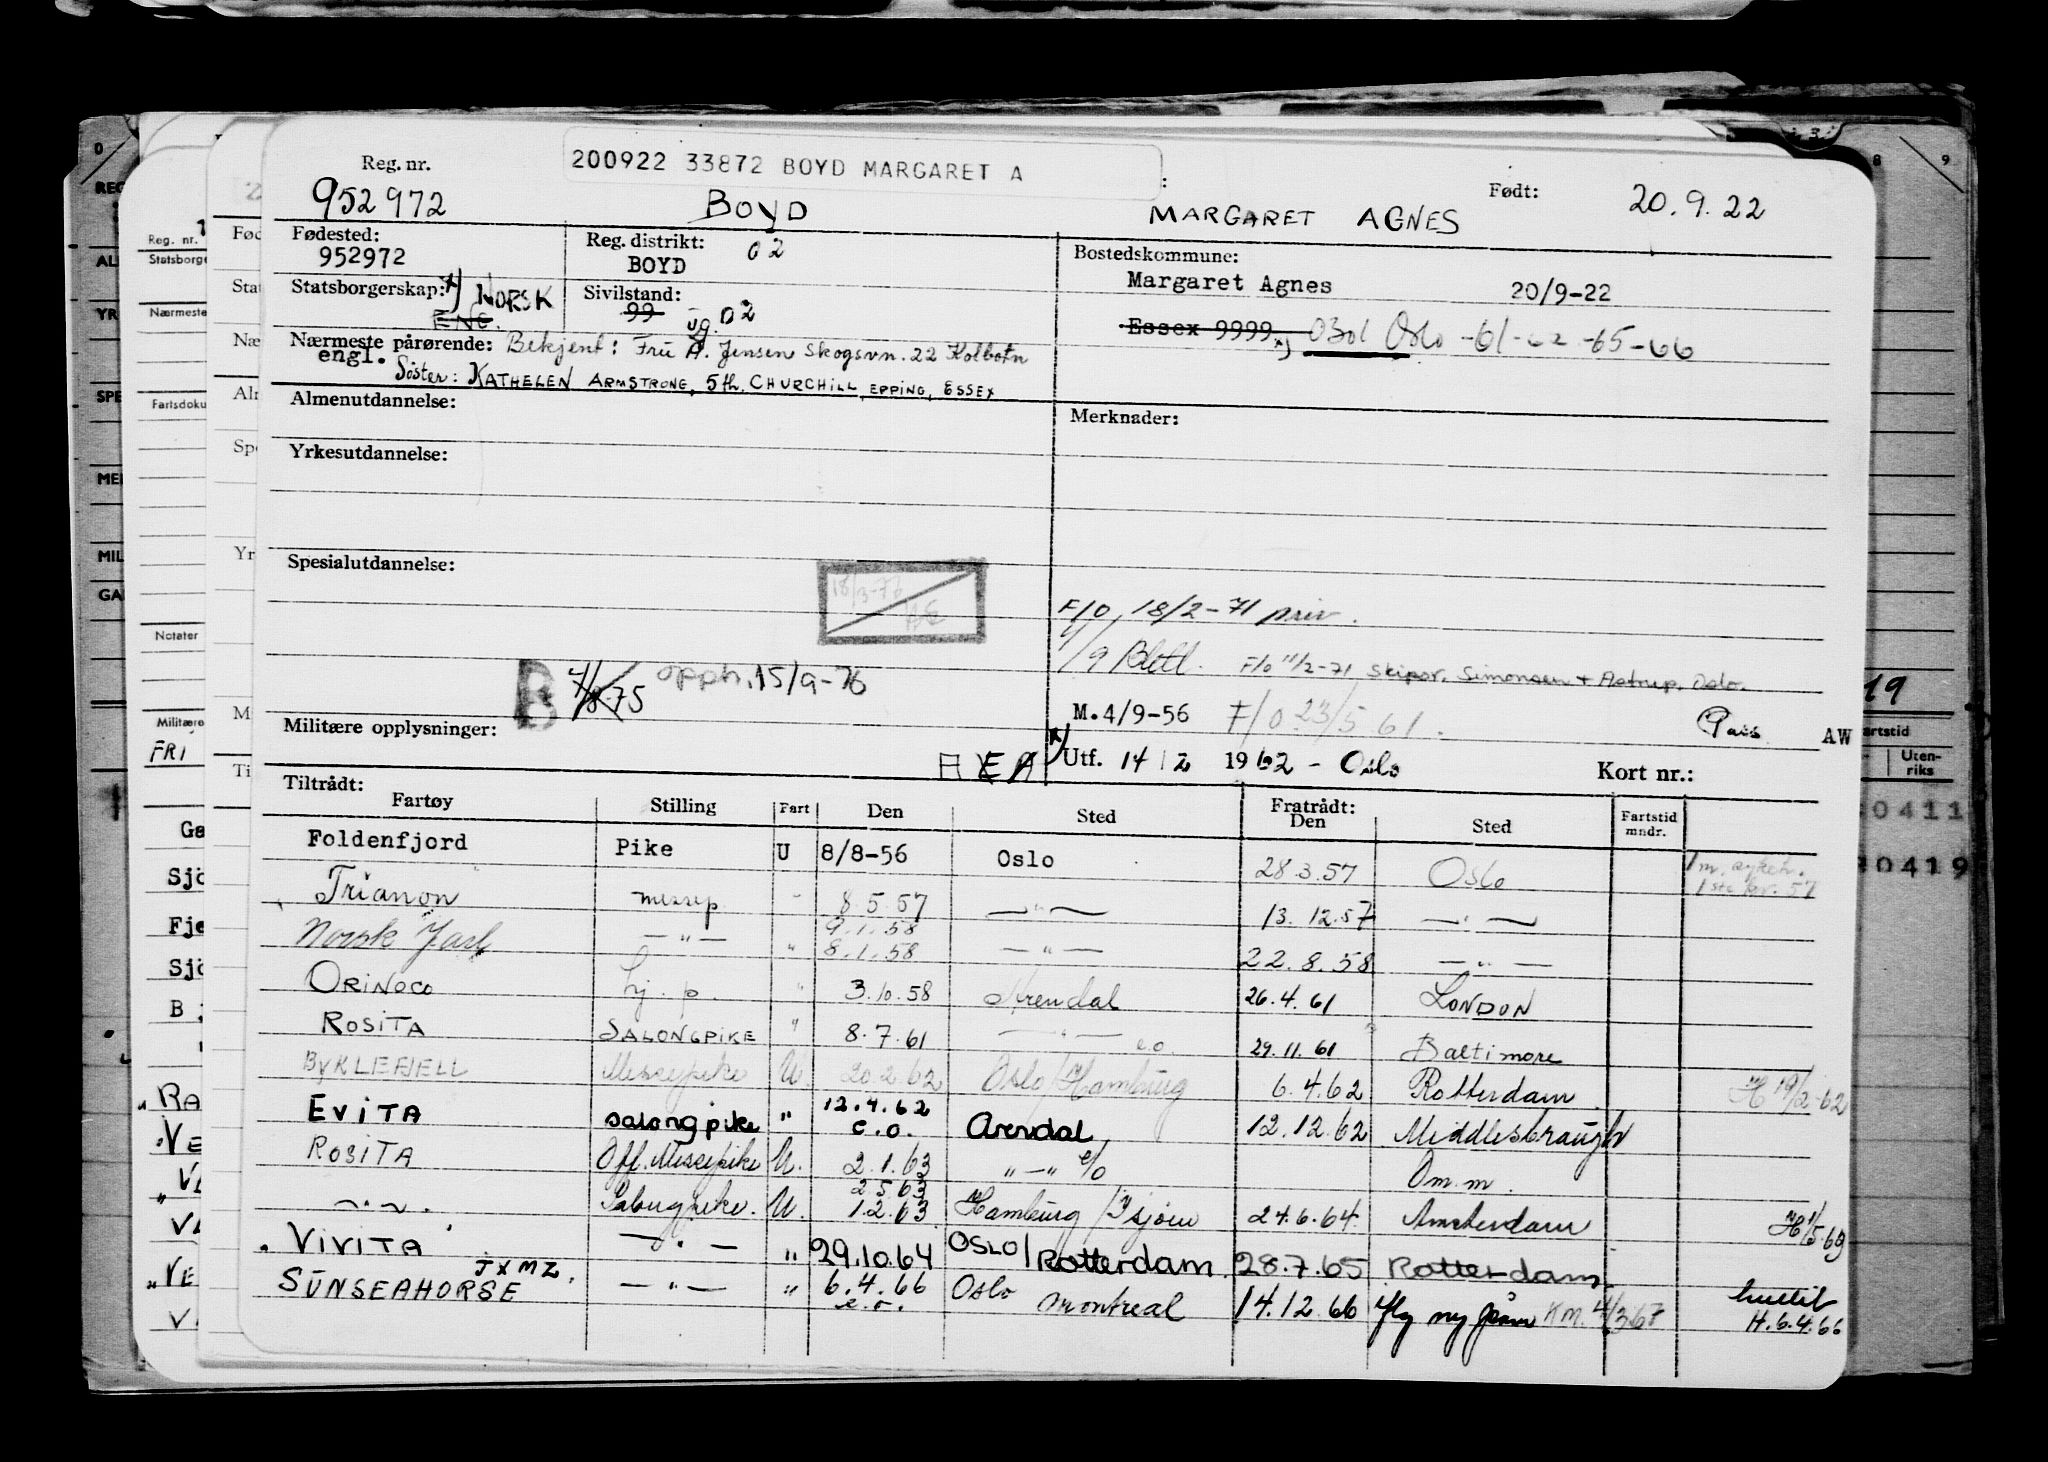 Reg. nr. 200922 33872 BOYD MARGARET A : Født:
952972 BOYD MARGARET AGNES 20.9.22
Fødested: Reg. distrikt: 02 Bostedskommune:
952972 BOYD Margaret Agnes 20/9-22
Statsborgerskap: x) NORSK Sivilstand:
ENG. 99 ug. 02 Essex 9999 x) 0301 Oslo -61-62-65-66
Nærmeste pårørende: Bekjent: Fru A. Jensen Skogsvn. 22 Kolbotn
engl. Söster: KATHELEN ARMSTRONG, 5th. CHURCHILL, EPPING, ESSEX
Almenutdannelse: Merknader:
Yrkesutdannelse:
Spesialutdannelse:
18/3-77
F/O 18/2-71 priv.
F/o 11/2-71 Skipsr. Simonsen + Astrup. Oslo.
B 75 opph. 15/9-76
M.4/9-56 F/O 23/5 61. Pass AW
Militære opplysninger:
x) Utf. 14/2 1962 - Oslo Kort nr.:
Tiltrådt: Fratrådt:
Fartøy Stilling Fart Den Sted Den Sted Fartstid mndr.
Foldenfjord Pike U 8/8-56 Oslo 28.3.57 Oslo
Trianon messp. - 8.5.57 —"— 13.12.57 —"—
9.1.58
Norsk Jarl —"— " 8.1.58 —"— 22.8.58 —"—
ORINOCO hj. p. " 3.10.58 Arendal 26.4.61 LONDON
ROSITA SALONGPIKE " 8.7.61 —"— e.o. 29.11.61 Baltimore
BYKLEFJELL Messepike U. 20.2.62 Oslo/Hamburg 6.4.62 Rotterdam H 19/2-62
EVITA salongpike " 12.4.62 e.o. Arendal 12.12.62 Middlesbraugh
ROSITA Off. Messepike U. 2.1.63 "—" e/o Om.m.
2.5.63
—"—. Salongpike. U. 1.2.63 Hamburg / 24.6.64. Amsterdam H
VIVITA —"— " 29.10.64 OSLO/Rotterdam 28.7.65 Rotterdam
SUNSEAHORSE JXMZ. —"— " 6.4.66 e.o. Oslo Montreal 14.12.66 KM. H.6.4.66
REG
ALM
YR
SPE
MEI
MIL
GA
Reg. nr.
Statsborge
Nærmeste
Fartsdoku
Notater
Militære
FRI
Ga
Sjö
Fje
Sjö
B
RA
VE
VE
Fød
Stat
Næ
Alm
Spe
Yr
M
Ti
0
8
9
19
artstid
Uten-
riks
0411
0419